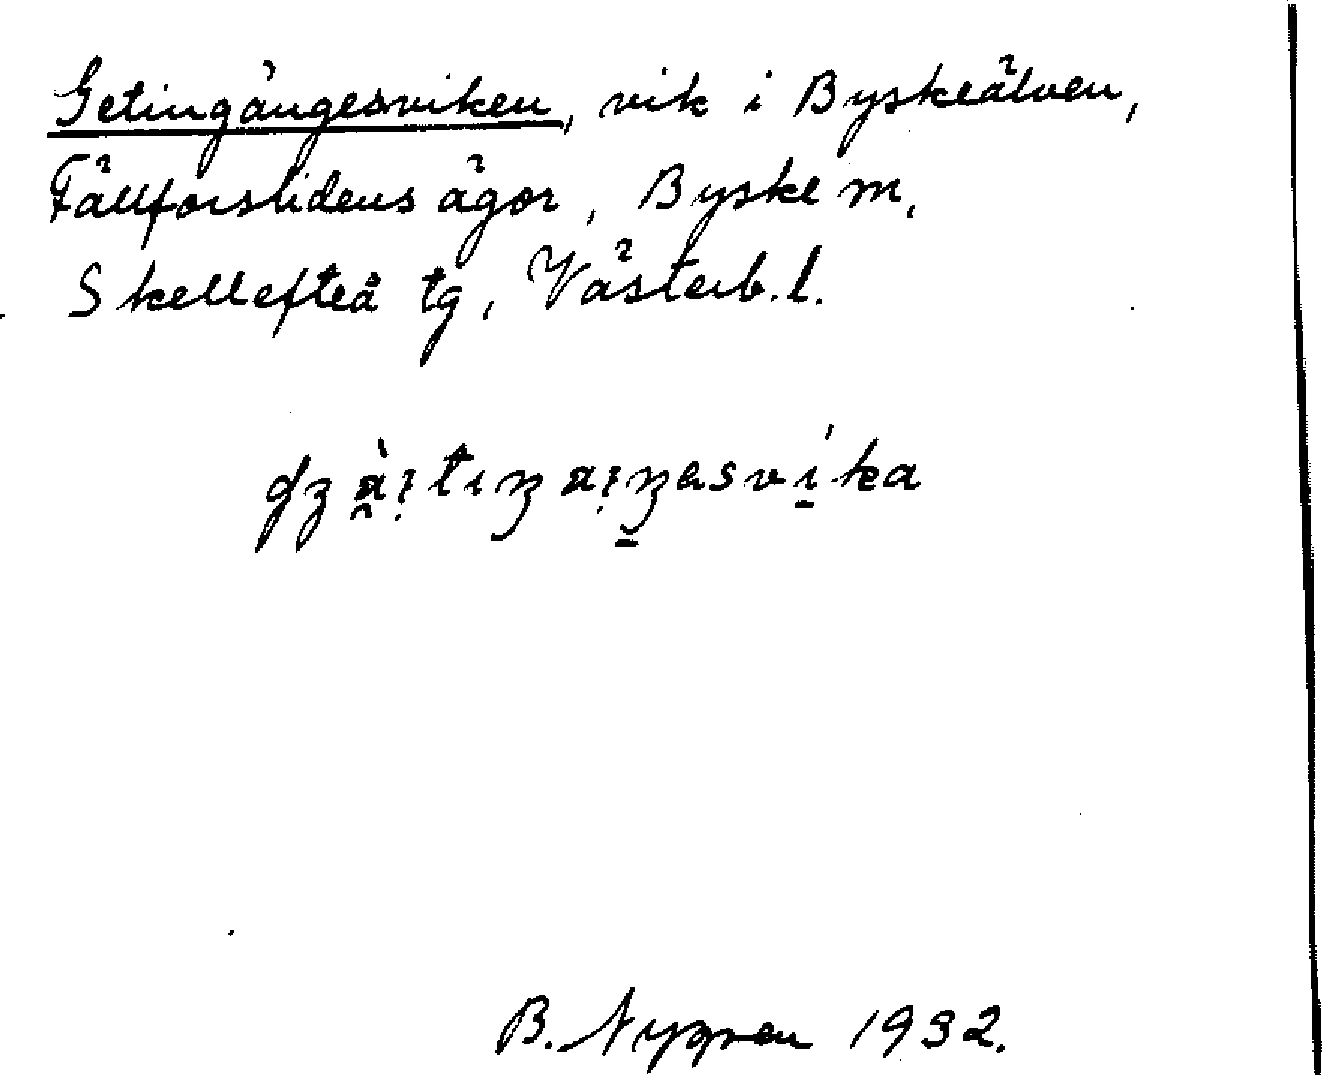 Getingängesviken, vik i Byskeälven,
Fällforslidens ägor, Byske m,
Skellefteå tg, Västerb. l.
B. Nygren 1932.